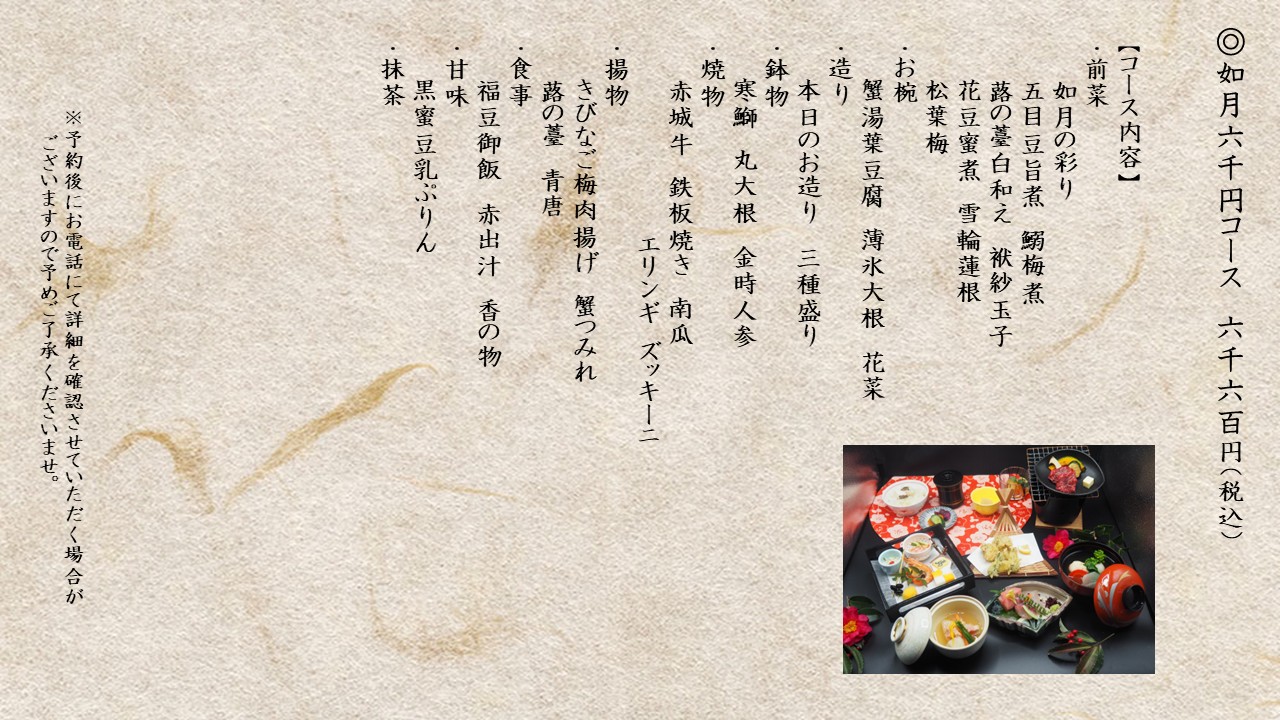 ◎如月六千円コース 六千六百円(税込)
【コース内容】
・前菜
如月の彩り
五目豆旨煮 鰯梅煮
蕗の薹白和え 袱紗玉子
花豆蜜煮 雪輪蓮根
松葉梅
・お椀
蟹湯葉豆腐 薄氷大根 花菜
・造り
本日のお造り 三種盛り
・鉢物
寒鰤 丸大根 金時人参
・焼物
赤城牛 鉄板焼き 南瓜
エリンギ ズッキーニ
・揚物
きびなご梅肉揚げ 蟹つみれ
蕗の薹 青唐
・食事
福豆御飯 赤出汁 香の物
・甘味
黒蜜豆乳ぷりん
・抹茶
※予約後にお電話にて詳細を確認させていただく場合が
ございますので予めご了承くださいませ。